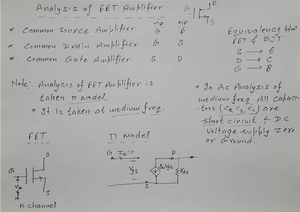 Analysis of FET Amplifier
G
D
S
i/p o/p
* Common Source Amplifier G D
* Common Drain Amplifier G S
* Common Gate Amplifier S D
Equivalence b/w
FET & BJT
S → E
D → C
G → B
Note:- Analysis of FET Amplifier is
taken π model.
* It is taken at medium freq.
* In AC Analysis of
medium freq. All capaci-
tors are
short circuit & DC
Voltage supply zero
or Ground.
FET
D
G
S
Vgs
n channel
π model
G
D
Vgs
gmVgs
S